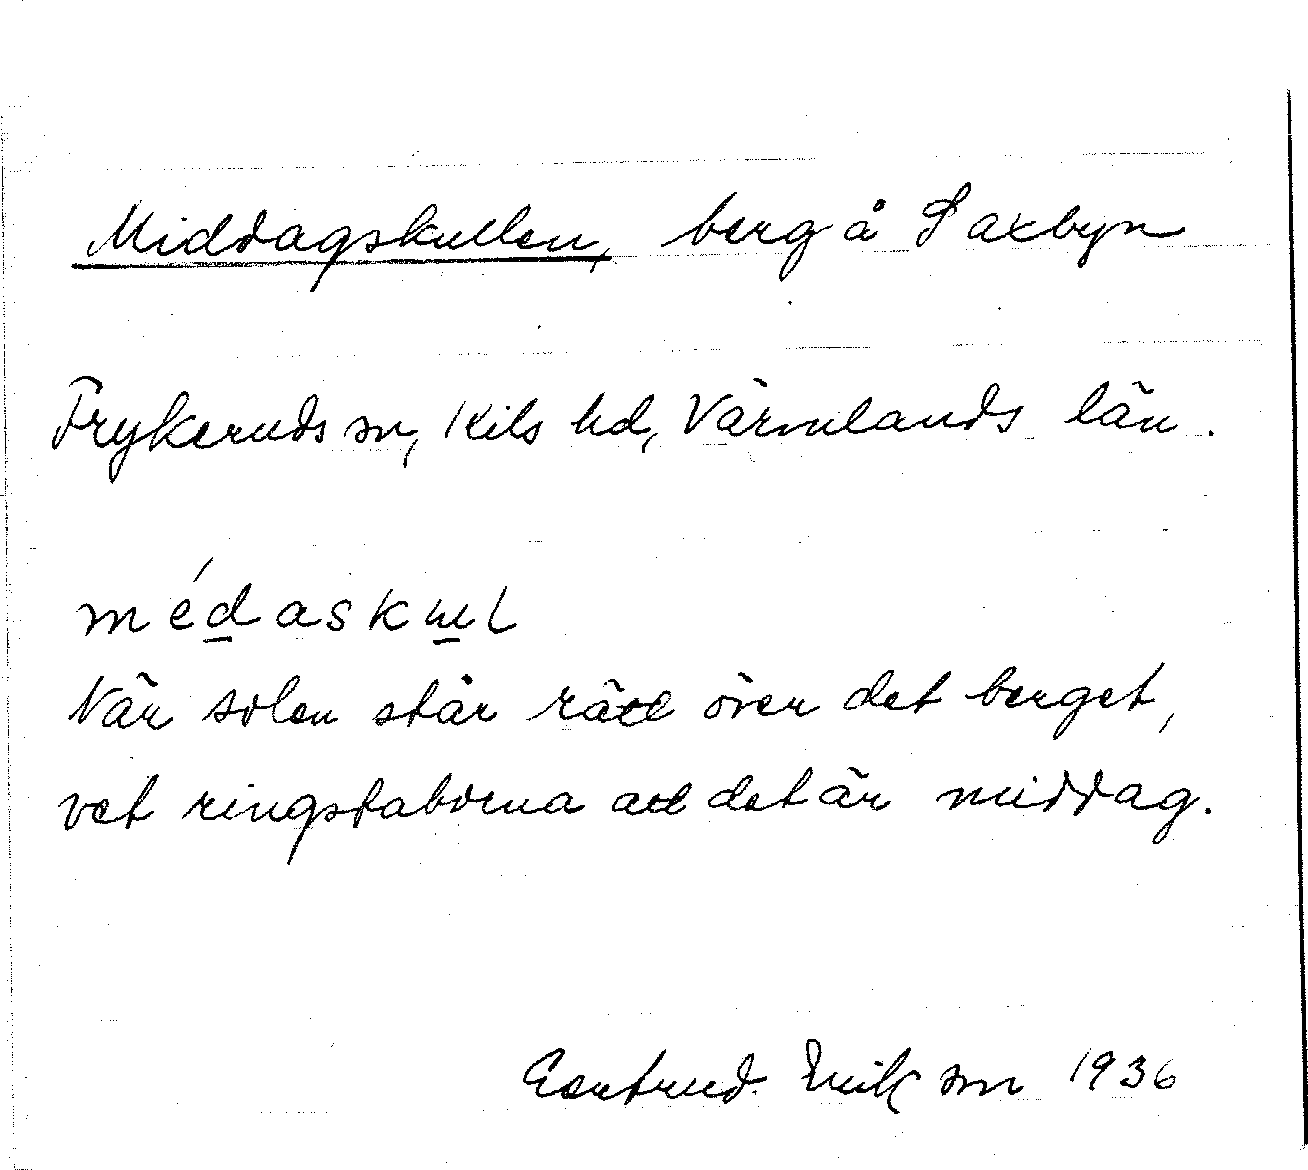 Middagskullen, berg å Saxbyn
Frykeruds sn, Kils hd, Värmlands län.
médaskul
När solen står rätt över det berget,
vet ringstaborna att det är middag.
Gertrud Erikson 1936